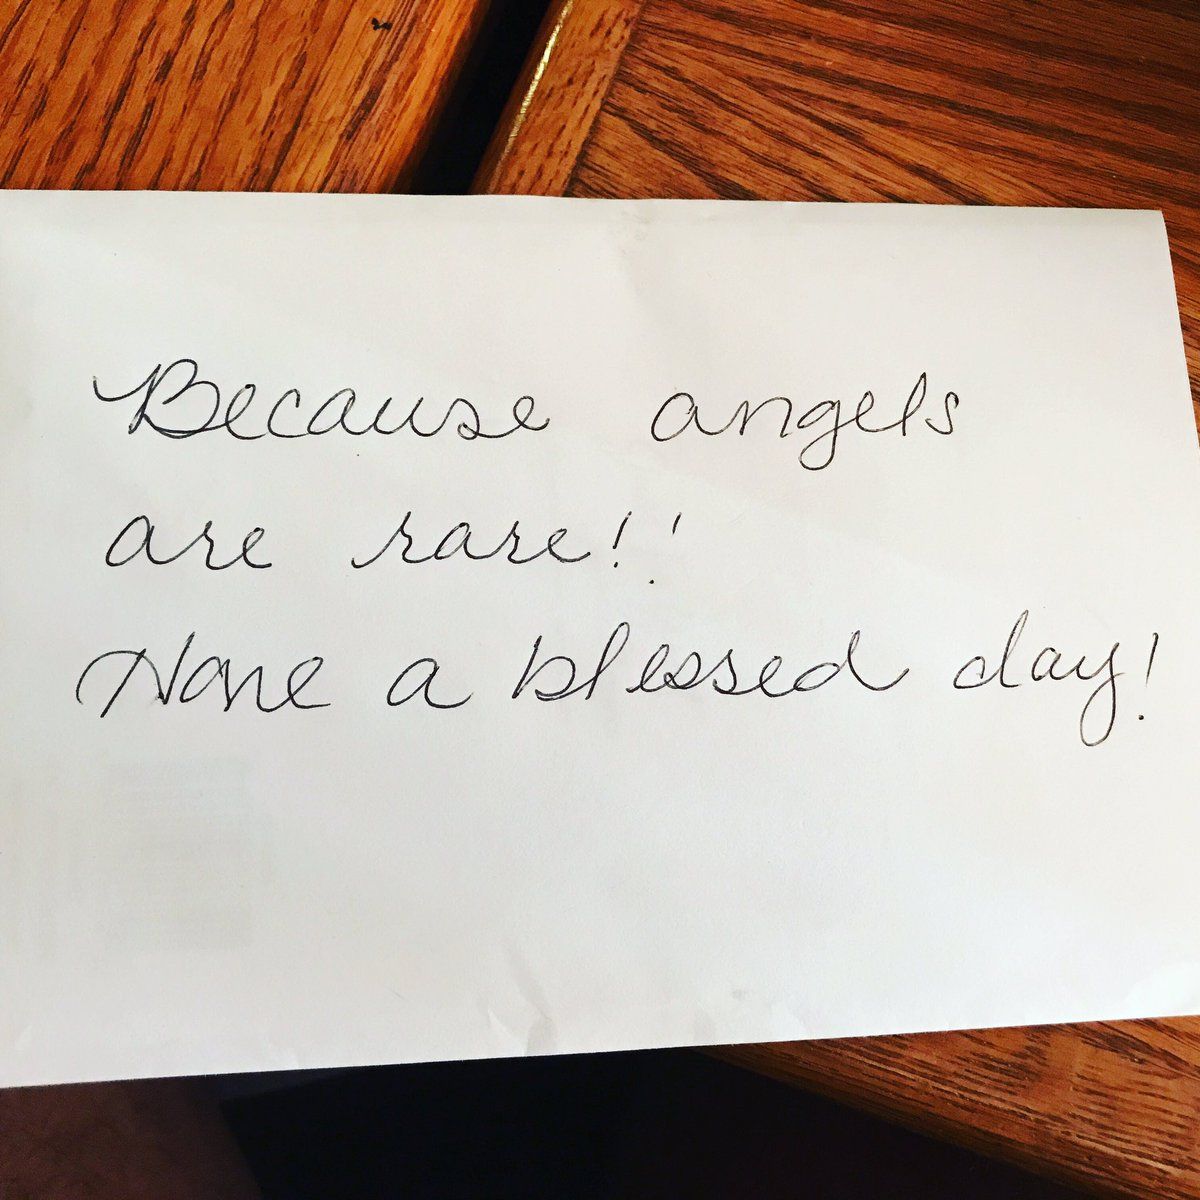 Because angels
are rare!!
Have a blessed day!